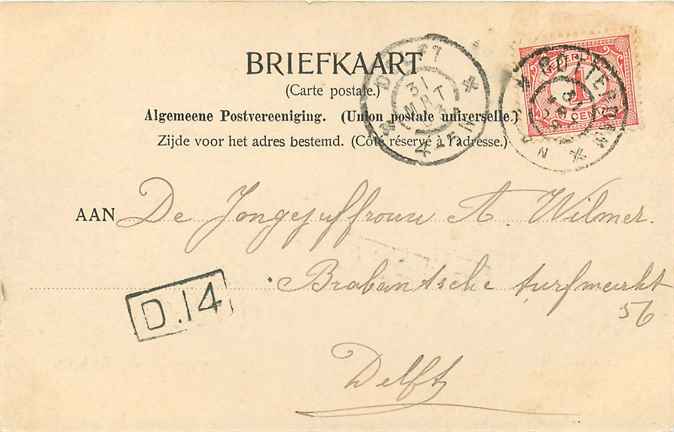 BRIEFKAART
(Carte postale.)
Algemeene Postvereeniging. (Union postale universelle.)
Zijde voor het adres bestemd. (Côté réservé à l'adresse.)
DELFT
31
MRT
ROTTERDAM
31
1
AAN De Jongejuffrouw A. Wilmer.
Brabantsche turfmarkt
56
D.14
Delft